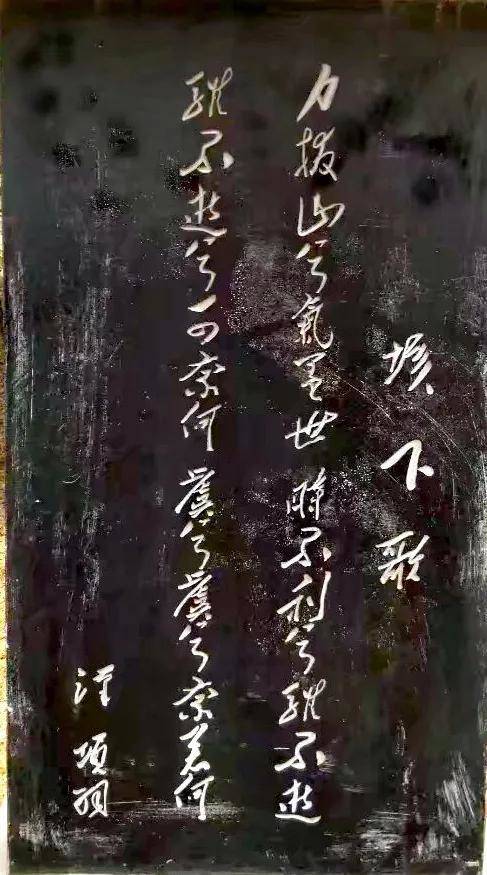 垓下歌
力拔山兮氣蓋世時不利兮骓不逝
骓不逝兮可奈何虞兮虞兮奈若何
汉项羽